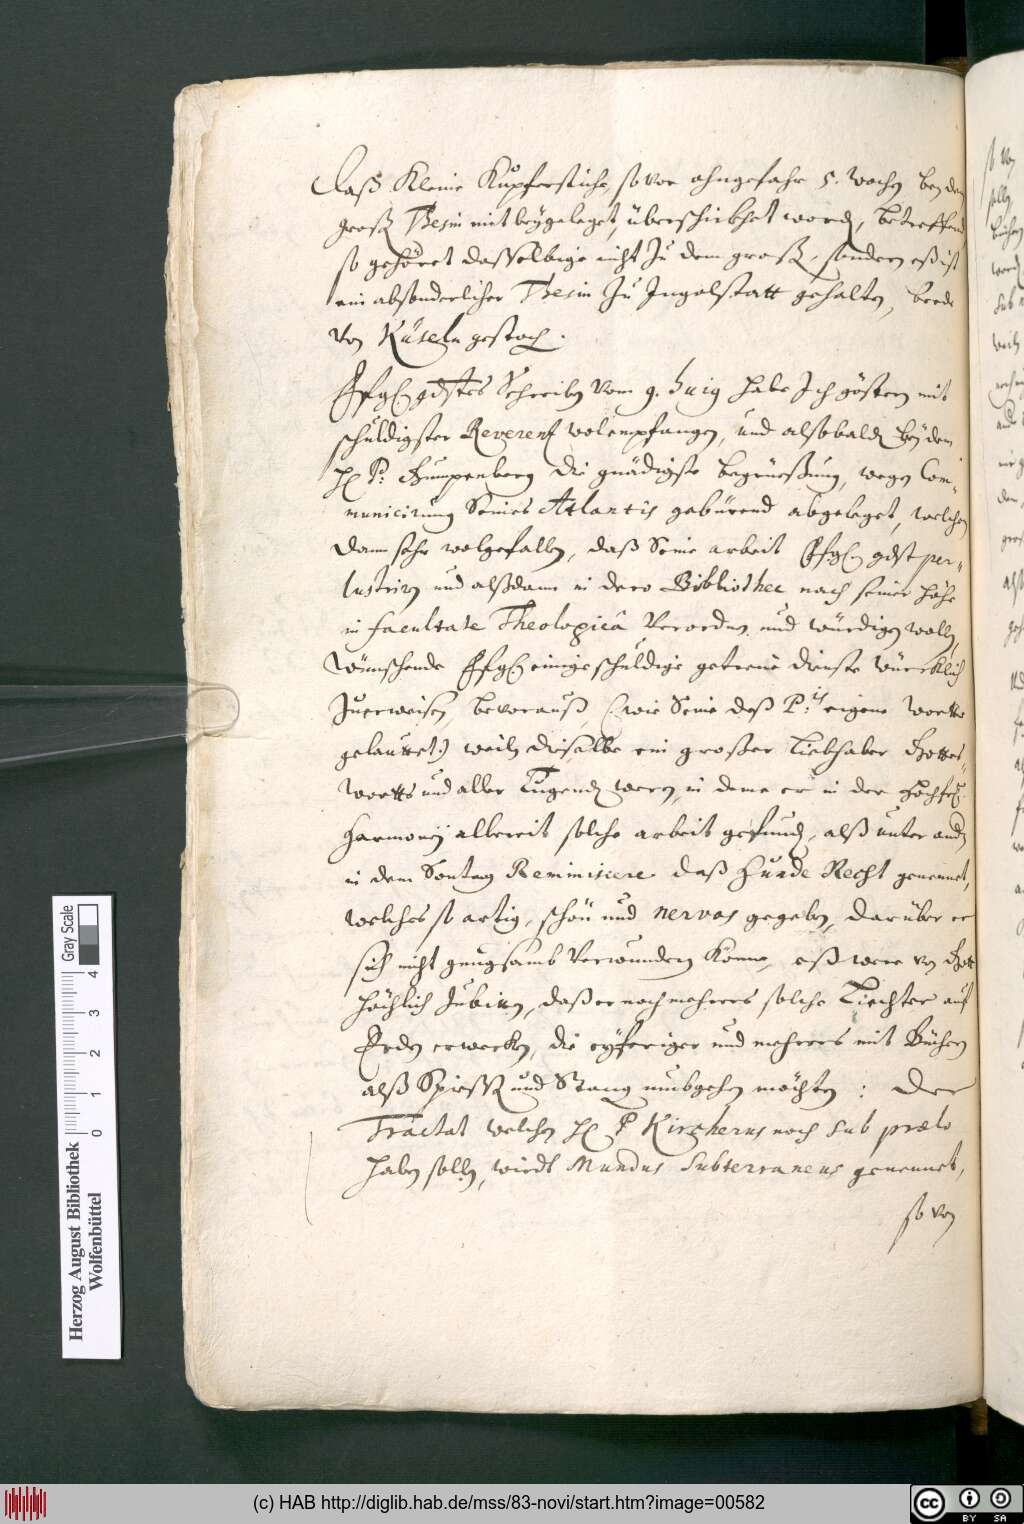 Daß Kleine Kupferstichs, so vor ohngefahr 5. wochen bey dem
groß Thesin mit beygeleget, überschickhet word, betreffend
so gehöret dasselbige nicht zu dem groß, sondern eß ist
ein absonderlicher Thesin zu Ingolstatt gehalten, beede
von Küseln gestoch.
gdstes Schreiben vom 9. huig habe Ich gestern mit
schuldigster Reverentz wol empfangen, und alsobald bey dem
H P. Gumpenberg die gnädigste begrüeßung, wegen Com-
municirung Seines Atlantis gebürend abgeleget, welchen
dann sehr wolgefallen, daß Seine arbeit gdst per-
lustriren und alßdann in dero Bibliothec nach seiner höhe
in facultate Theologicâ verordnen und würdigen wollen,
wünschende einige schuldige getreüe dienste würcklich
zuerweisen, bevorauß, (wie Seine deß P. eigene wortte
gelauttet:) weiln dieselbe ein großer Liebhaber Gottes
wortts und aller Tugend weren, in deme er in der
Harmoney allereit solche arbeit gefund, alß unter and
in dem Sontag Reminiscere daß Hunde Recht genennet,
welches so artig, schön und nervos gegeben, darüber er
sich nicht gnugsamb verwundern könne, eß were von Gott
höchlich zubitten, daß er noch mehrers solche Liechter auf
Erden erwecken, die eyferiger und mehrers mit Büchern
alß Spieß und Stang umbgehen möchten: Der
Tractat welchen H P Kircherus noch sub prælo
haben solle, wirdt Mundus Subterraneus genennet,
so von
Herzog August Bibliothek
Wolfenbüttel
0 1 2 3 4
Gray Scale
(c) HAB http://diglib.hab.de/mss/83-novi/start.htm?image=00582
cc BY SA